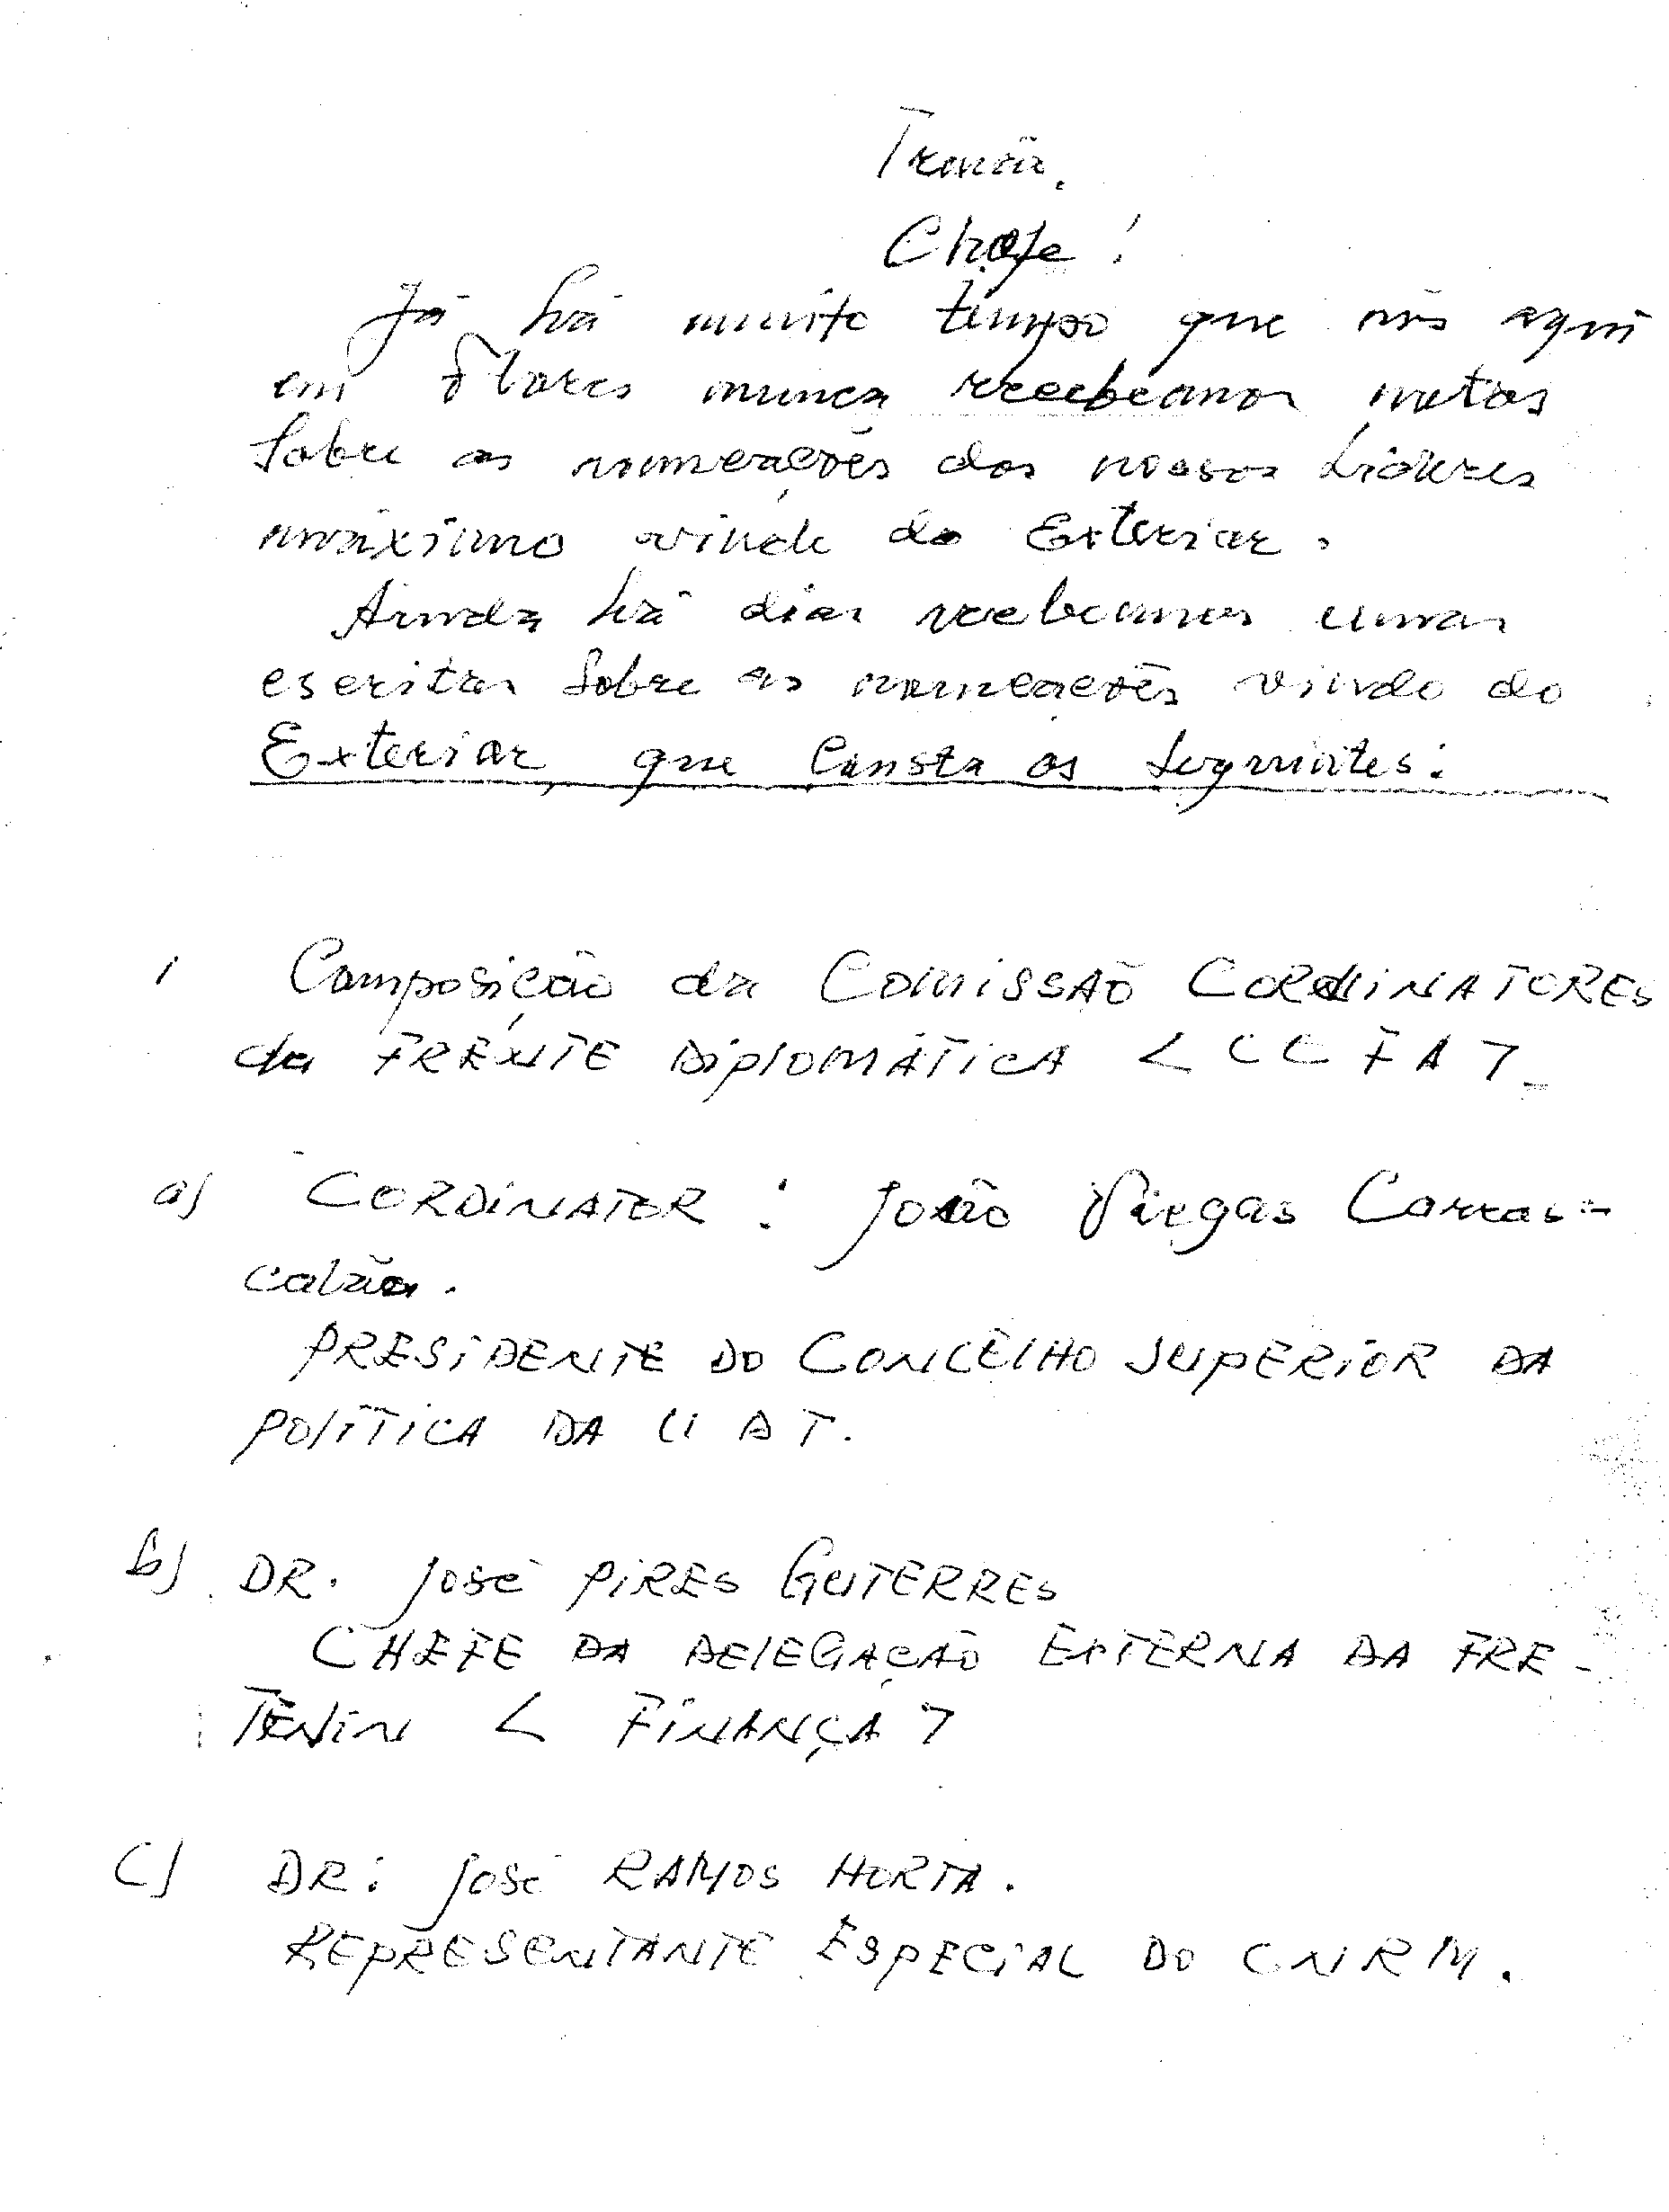 Chefe!
Já há muito tempo que nós aqui
em Flores nunca recebeamos
Sobre as nomeações dos nossos Lideres
máximo vinde do Exterior.
Ainda há dias recebeamos umas
escritas Sobre as nomeações vindo do
Exterior, que Consta os Seguintes:
1 Composição da COMISSÃO CORDINATORES
da FRENTE DiplOMÁTiCA < C C F A >
a) CORDiNATOR : João Viegas Carras-
calão.
PRESiDENTE DO CONCElHO SUPERiOR DA
POlÍTiCA DA U D T.
b) DR. José PiRES GUTERRES
CHEFE DA DElEGAÇÃO EXTERNA DA FRE-
TENiN < FiNANÇA >
C) DR: José RAMOS HORTA.
REPRESENTANTE ESPECiAL DO CNRM.